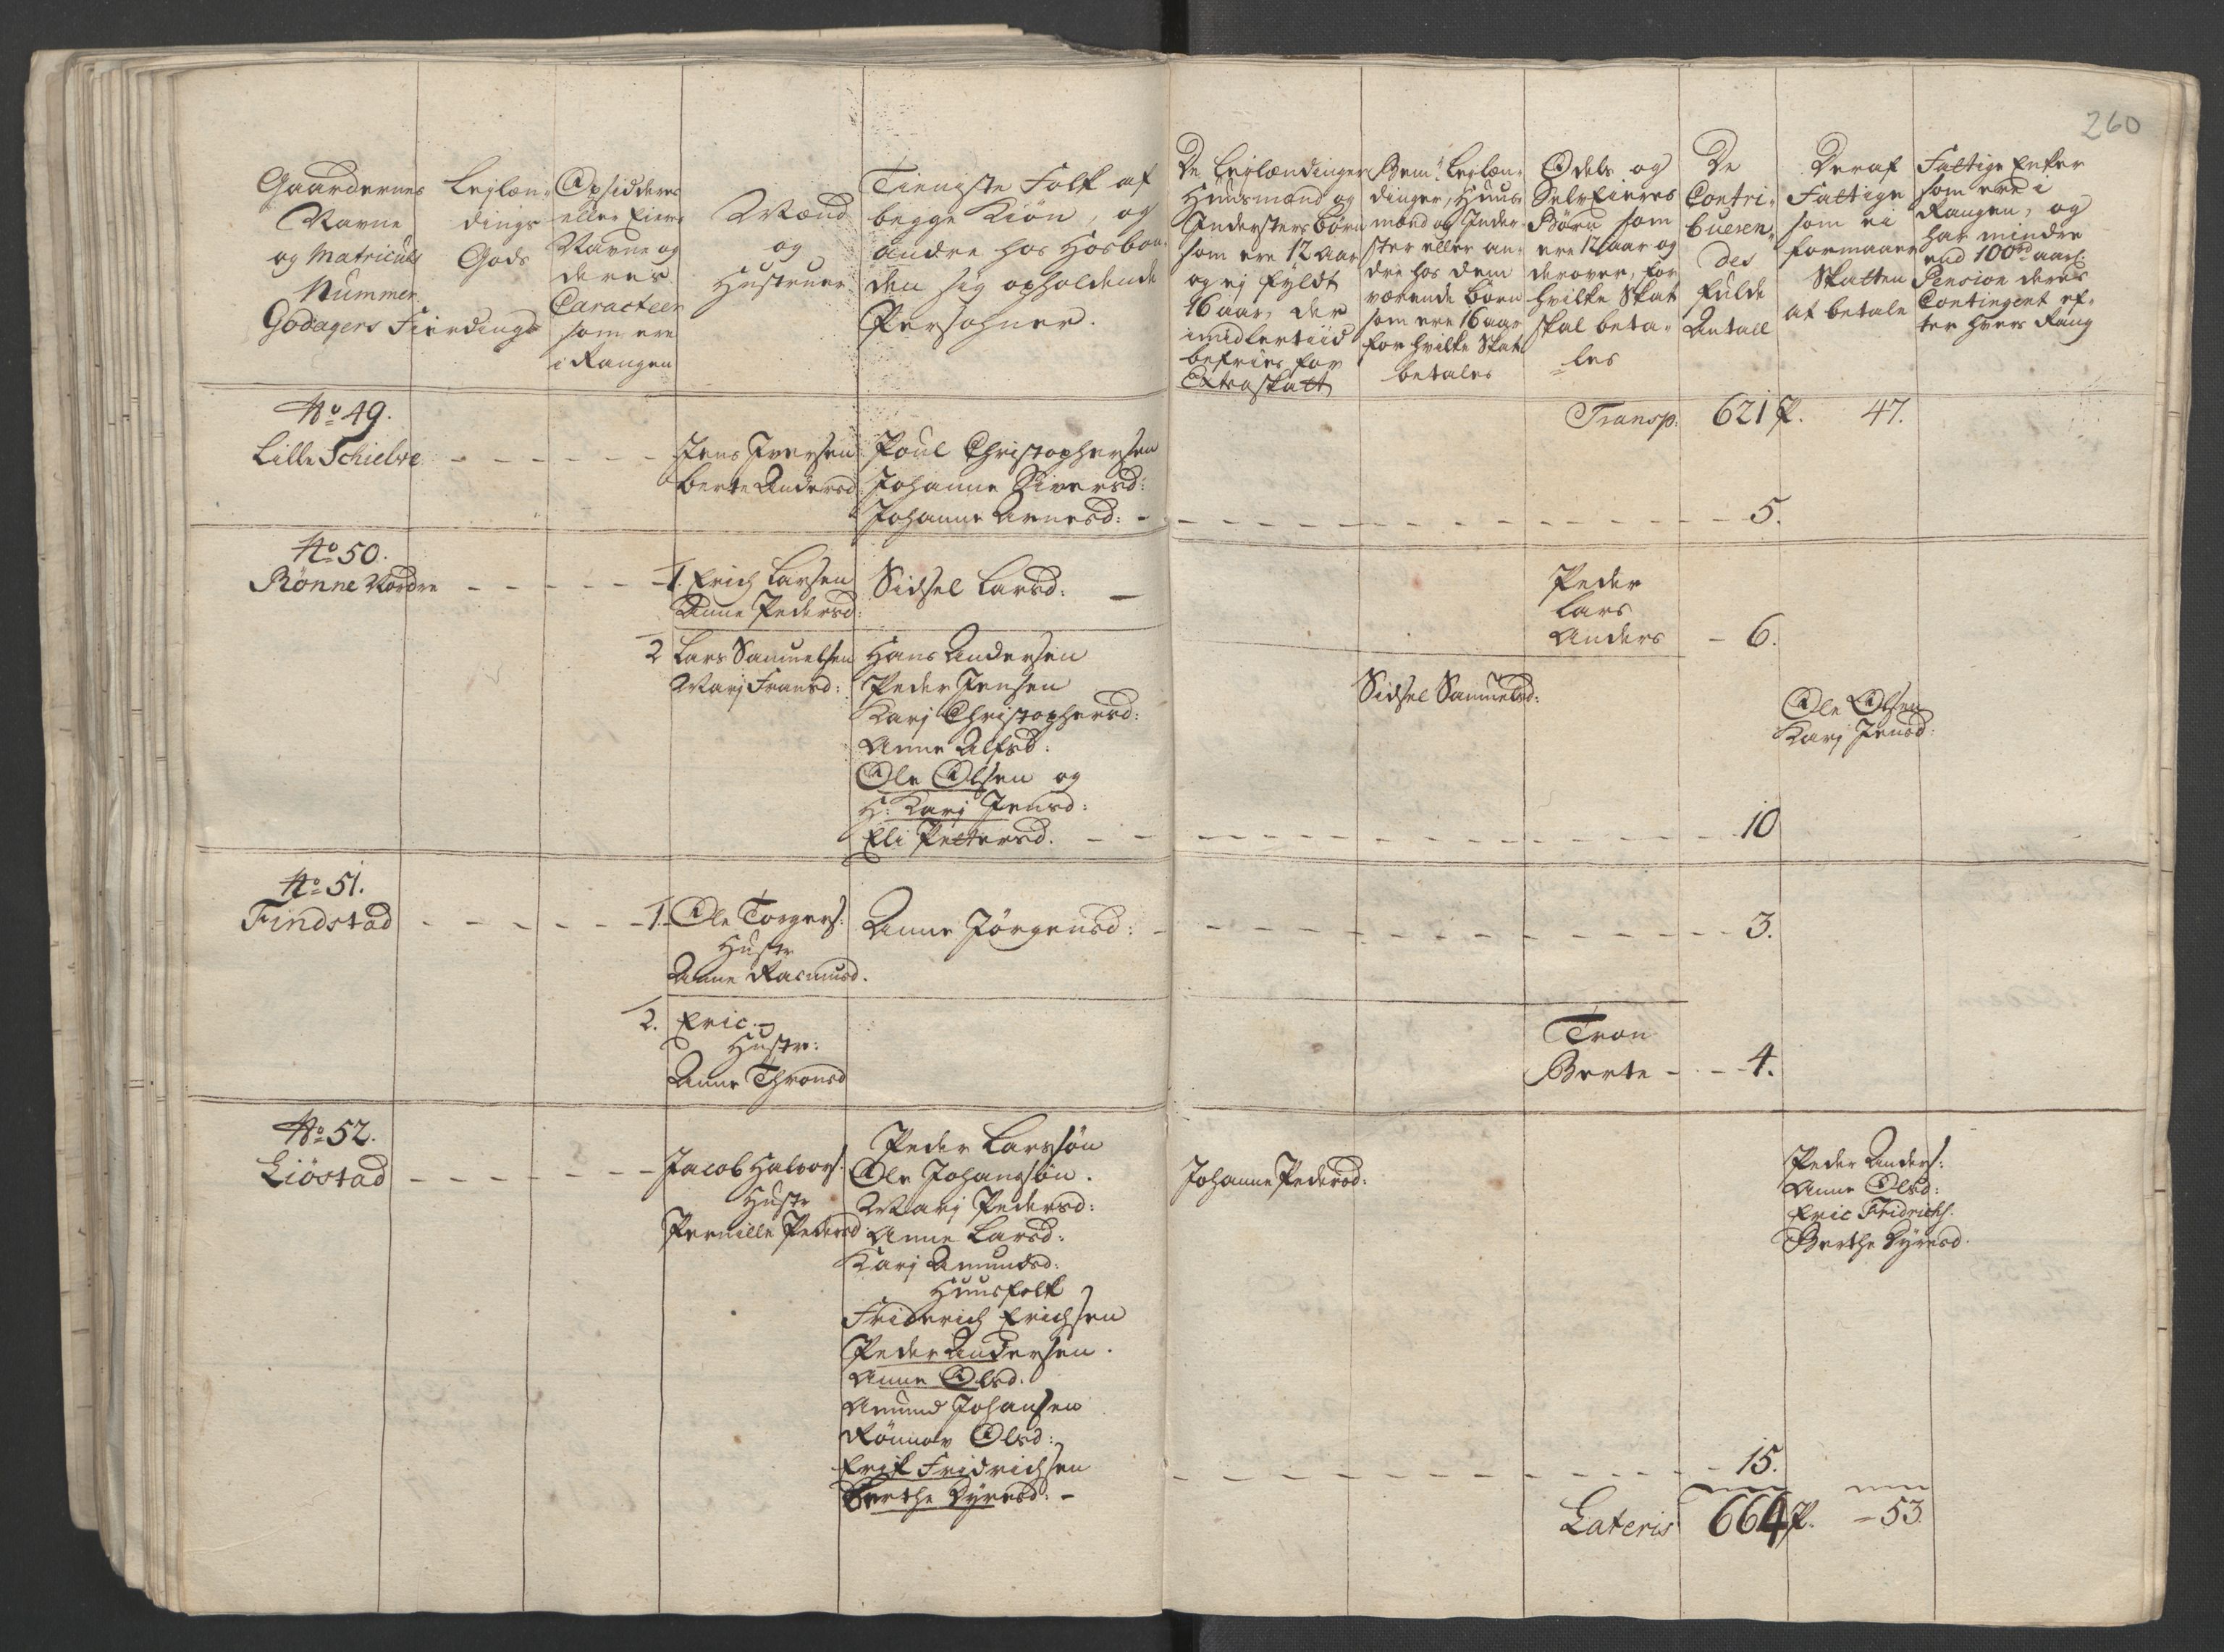 260
Gaardernes
Navne
og Matriculs
Nummer
Godagers Fierdings
Lejlæn-
dings
Gods
Opsidderes
eller Eiers
Navne og
deres
Caracteer
som ere
i Rangen
Mænd
og
Hustruer
Tieniste Folk af
begge Kiön, og
andre hos Hosbon-
den sig opholdende
Persohner.
De Lejlændinger
Huusmænd og
Inderster börn
som ere 12 Aar
og ej fyldt
16 aar, der
imidlertiid
befries for
Extraskatt
Bem.te Lejlæn-
dinger, Huus-
mænd og Inder-
ster eller an-
dre hos dem
værende börn
som ere 16 aar
for hvilke Skat
betales
Odels og
Selv Eieres
Börn som
ere 12 aar og
derover, for
hvilke Skat
skal beta-
les
De
Contri-
bueren-
des
fulde
Antall
Deraf
Fattige
som ei
formaaer
Skatten
at betale
Fattige Enker
som ere i
Rangen, og
har mindre
end 100 rd aarl:
Pension deres
Contingent ef-
ter hvers Rang
No 49.
Lille Schielve
Jens Iversen
Berte Andersd:
Poul Christophersen
Johanne Siversd:
Johanne Arnesd: -
Transp: 621 P. 47.
5.
No 50.
Rönne Nordre
1. Erich Larsen
Anne Pedersd:
Sidsel Larsd:
Peder
Lars
Anders - 6.
2 Lars Samuelsen
Marj Fransd:
Hans Andersen
Peder Jensen
Karj Christophersd:
Anne Alfsd:
Ole Olsen og
H: Karj Jensd:
Eli Pettersd.
Sidsel Samuelsd:
Ole Olsen
Karj Jensd:
10
No 51.
Findstad
1. Ole Torgers:
Hustr
Anne Rasmusd.
Anne Jörgensd:
3.
2. Eric
Hustr:
Anne Thronsd
Tron
Berte - - 4.
No 52.
Liöstad
Jacob Halvors:
Hustr
Pernille Pedersd
Peder Larssön
Ole Johansön.
Marj Pedersd:
Anne Larsd:
Karj Amundsd:
Huusfolk
Friderich Erichsen
Peder Andersen.
Anne Olsd.
Amund Johansen
Rönnov Olsd:
Erik Fridrichsen
Berthe Dyresd: -
Johanne Pedersd:
Peder Anders:
Anne Olsd:
Eric Fridrichs.
Berthe Dyresd.
15.
Lateris 664 P. - 53.